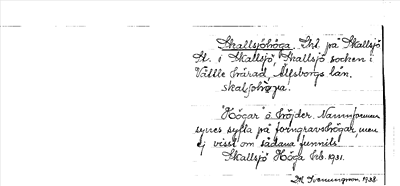 Skallsjöhöga. Tht. på Skallsjö
St. i Skallsjö, Skallsjö socken i
Vättle härad, Älfsborgs län.
skalsjöhöga.
"Högar" ö höjder. Namnformen
synes syfta på forngravshögar, men
ej visst om sådana funnits.
Skallsjö Höga hb. 1931.
1938